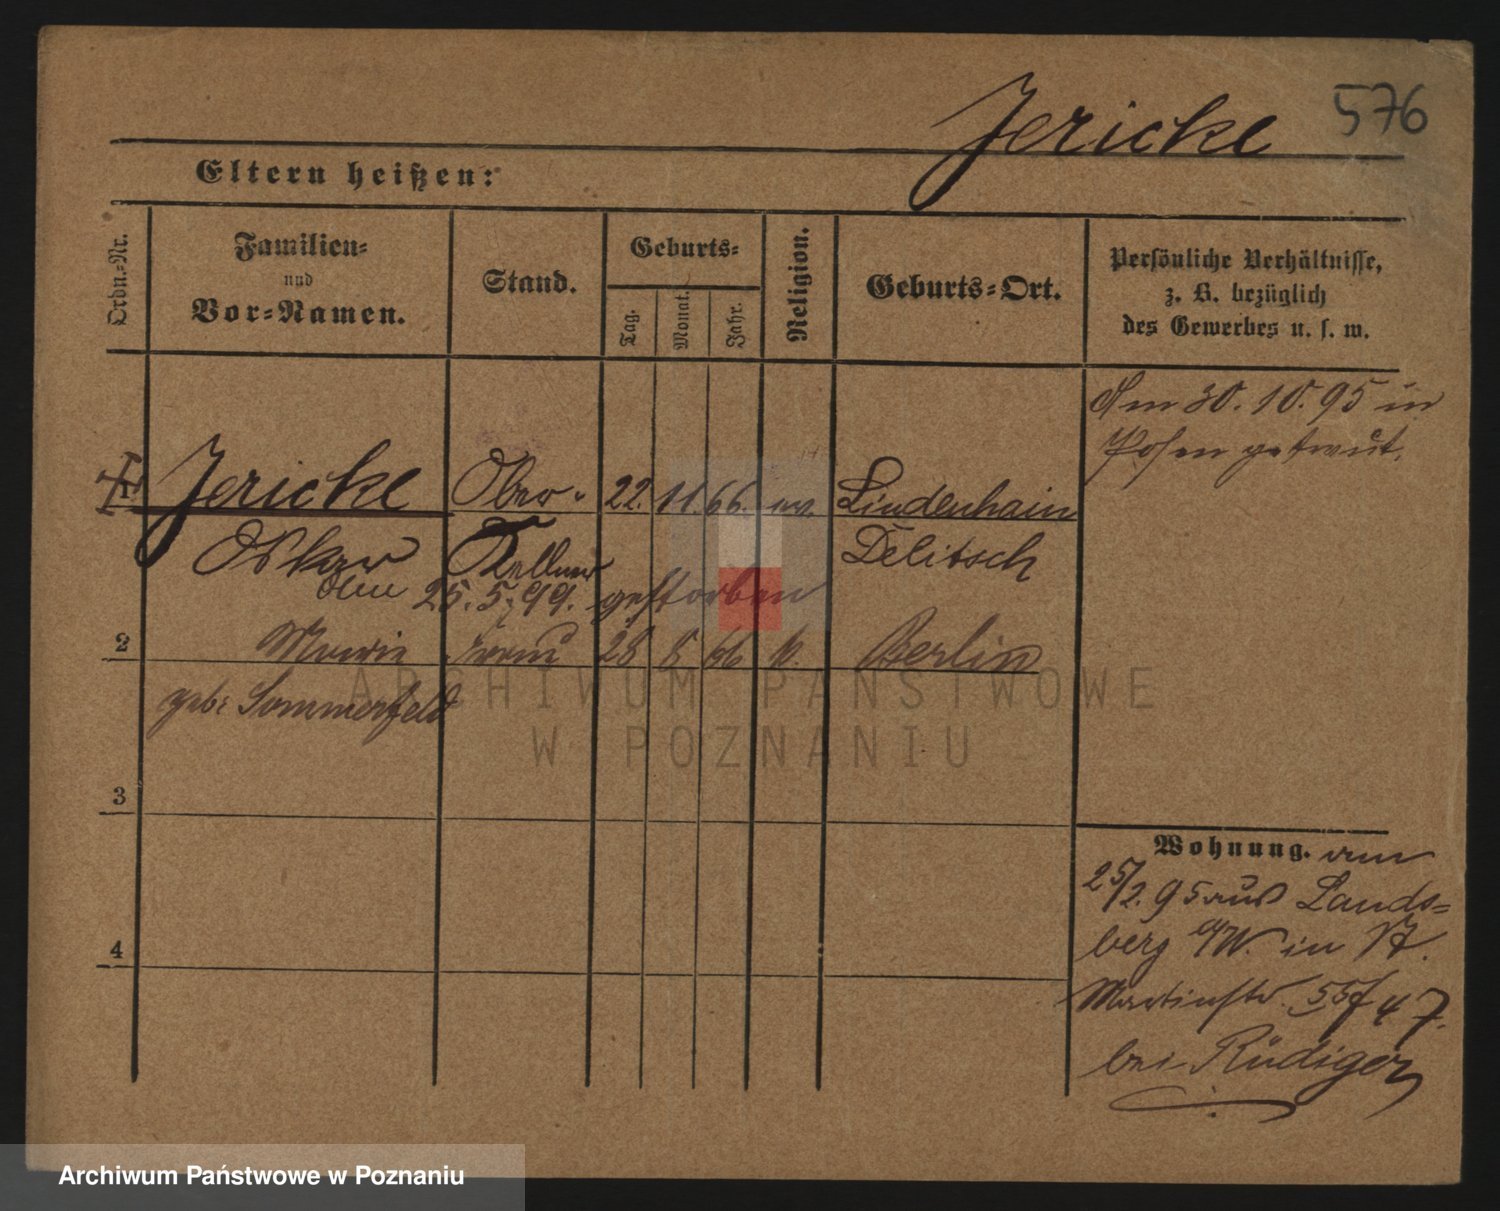 Jericke 576
Eltern heißen:
Ordn.=Nr.
Familien=
und
Vor=Namen.
Stand.
Geburts=
Tag.
Monat.
Jahr.
Religion.
Geburts=Ort.
Persönliche Verhältnisse,
z. B. bezüglich
des Gewerbes u. s. w.
Am 30.10.95 in
Posen getraut.
1 Jericke Ober- 22. 11. 66. ev. Lindenhain
Oskar Kellner Delitsch
25.5.99. gestorben
2 Marie Frau 28 8 66 k. Berlin
geb: Sommerfeld
3
4
Wohnung. am
25/2.95 aus Lands=
berg a/W. in St.
Martinstr. 55
bei Rüdiger
ARCHIWUM PAŃSTWOWE
W POZNANIU
Archiwum Państwowe w Poznaniu